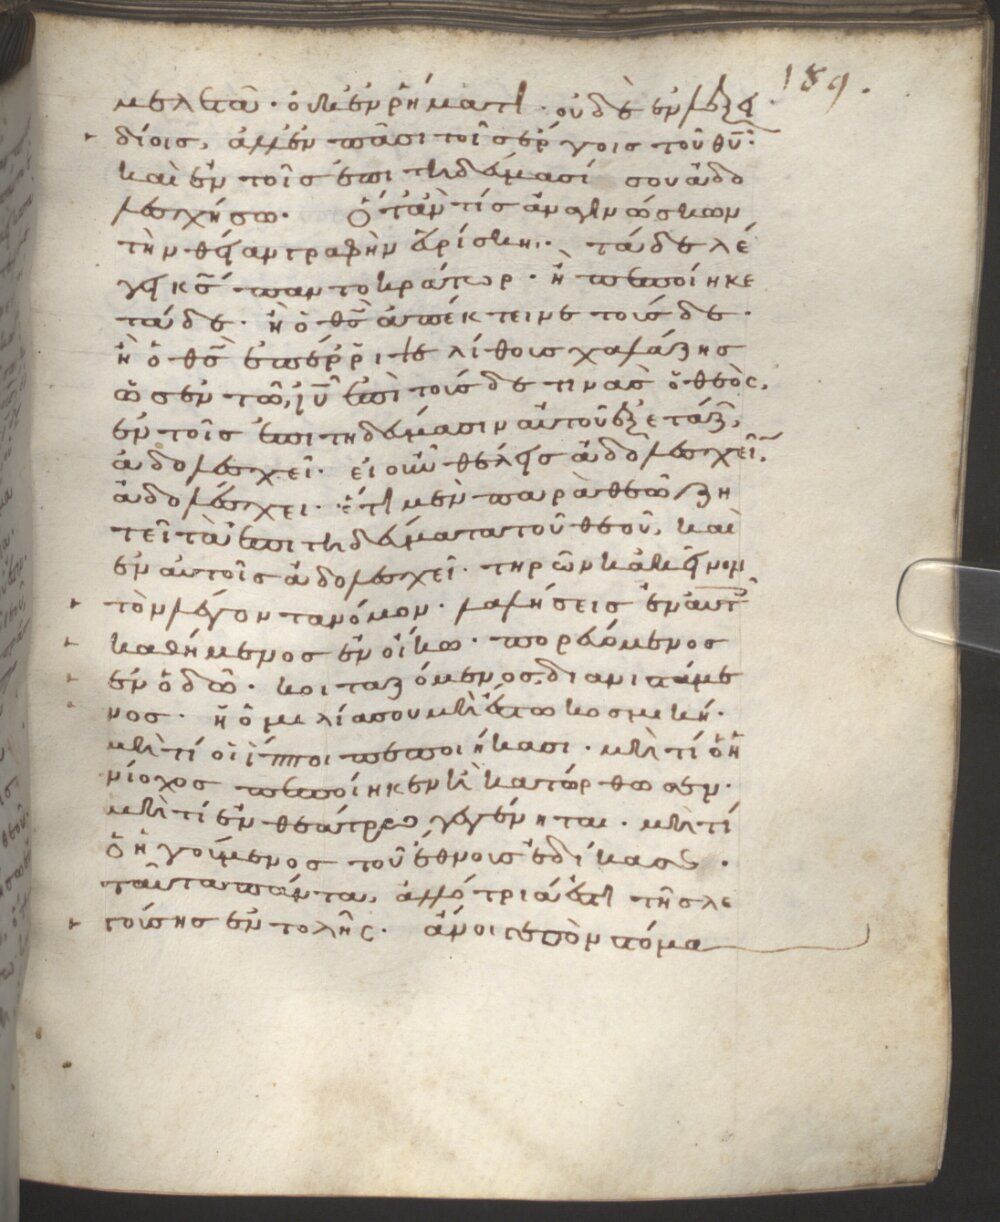 189.
μελετᾷ· οὐδὲ ἐν ῥήματι· οὐδὲ ἐν λεξει
δίοις, ἀλλ' ἐν πᾶσι τοῖς ἔργοις τοῦ θῦ·
καὶ ἐν τοῖς ἐπιτηδεύμασί σου ἀδο
λεσχήσω· Ὅταν τίς ἀναγινώσκων
τὴν θείαν γραφὴν εὑρίσκη·· τάδε λέ
γει κς παντοκράτωρ· ἢ πεποίηκε
τάδε· ἢ ὁ θς ἀπέκτεινε τούσδε·
ἢ ὁ θς ἐπέρριψε λίθους χαλάζης
ὡς ἐν τῶ ιυ ἐπὶ τούσδε τινας ὁ θεὸς,
ἐν τοῖς ἐπιτηδεύμασιν αὐτοῦ ἐξετάζ,
ἀδολεσχεῖ· εἰ οὖν θέλεις ἀδολεσχεῖν,
ἀδολέσχει· ἔτι μὲν παρὰ θεῶ ζη
τεῖ τὰ ἐπιτηδεύματα τοῦ θεοῦ, καὶ
ἐν αὐτοῖς ἀδολεσχεῖ· τηρῶν κἀκεῖνον
τὸν λέγοντα νόμον· λαλήσεις ἐν αὐτ
καθήμενος ἐν οἴκω· πορευόμενος
ἐν ὁδῶ· κοιταζόμενος, διανιστάμε
νος· ἡ ὁμιλία σου μὴ ἔστω κοσμική·
μὴ τί οἱ ἵπποι πεποιήκασι· μὴ τί ὁ ἡ
νίοχος πεποίηκεν ἢ κατώρθωσεν·
μὴ τί ἐν θεάτρω γεγένηται· μὴ τί
ὁ ἡγούμενος τοῦ ἔθνους ἐδίκασε·
ταῦτα πάντα, ἀλλότρια ἐστὶ τῆς λε
γούσης ἐντολῆς· ἄνοιγε σὸν στόμα